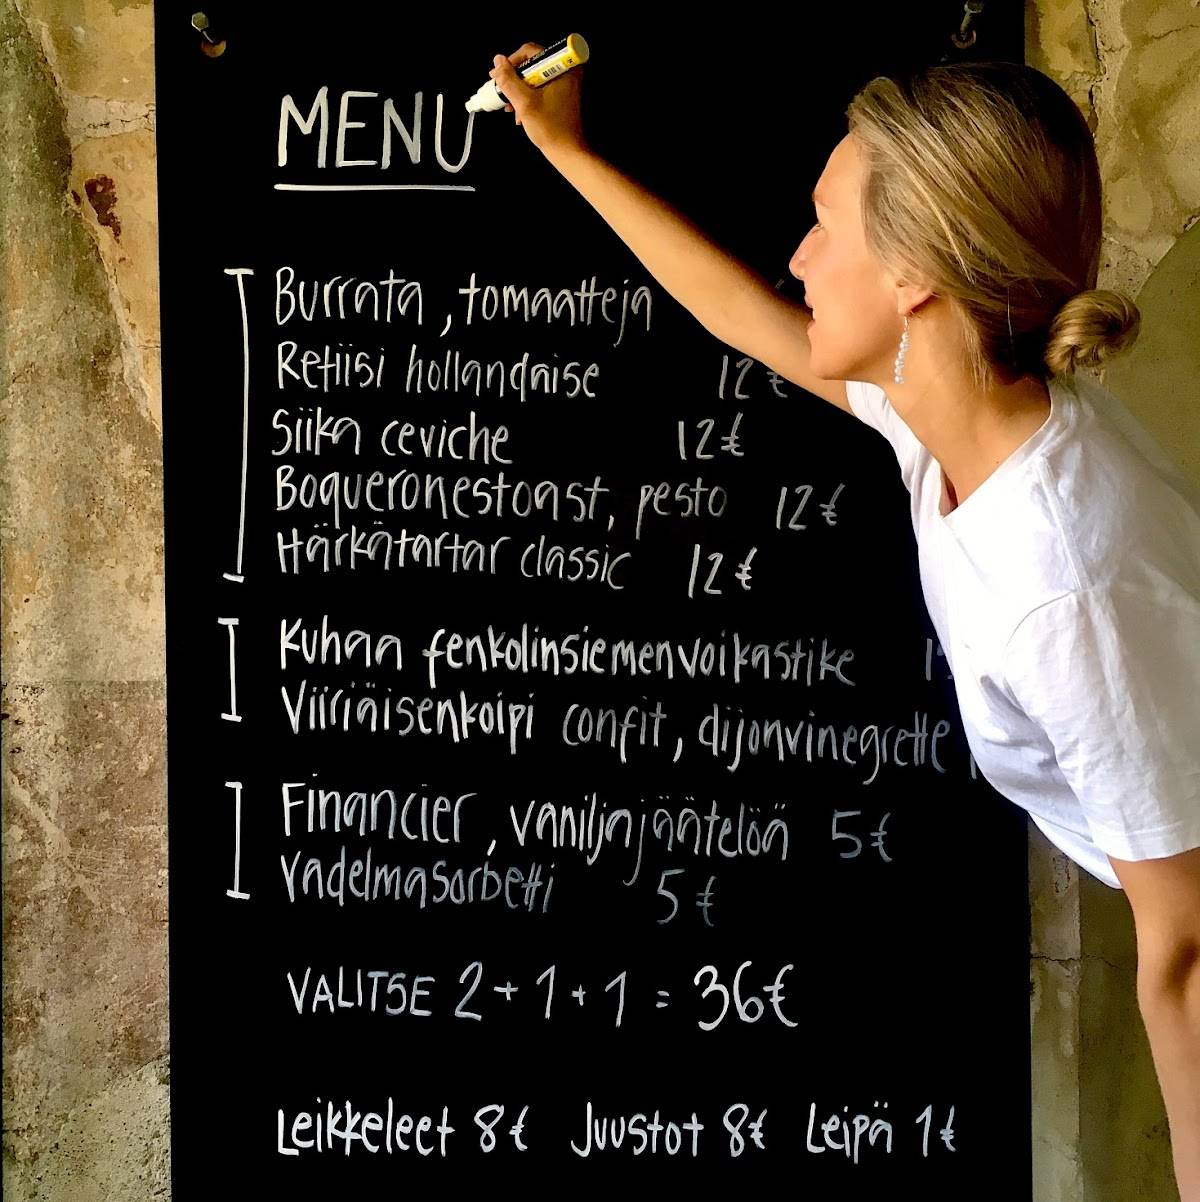 MENU
Burrata, tomaatteja
Retiisi hollandaise 12€
Siika ceviche 12€
Boqueronestoast, pesto 12€
Härkätartar classic 12€
Kuhaa fenkolinsiemenvoikastike
Viiriäisenkoipi confit, dijonvinegrette
Financier, vaniljajäätelöä 5€
Vadelmasorbetti 5€
VALITSE 2+1+1 = 36€
Leikkeleet 8€ Juustot 8€ Leipä 1€